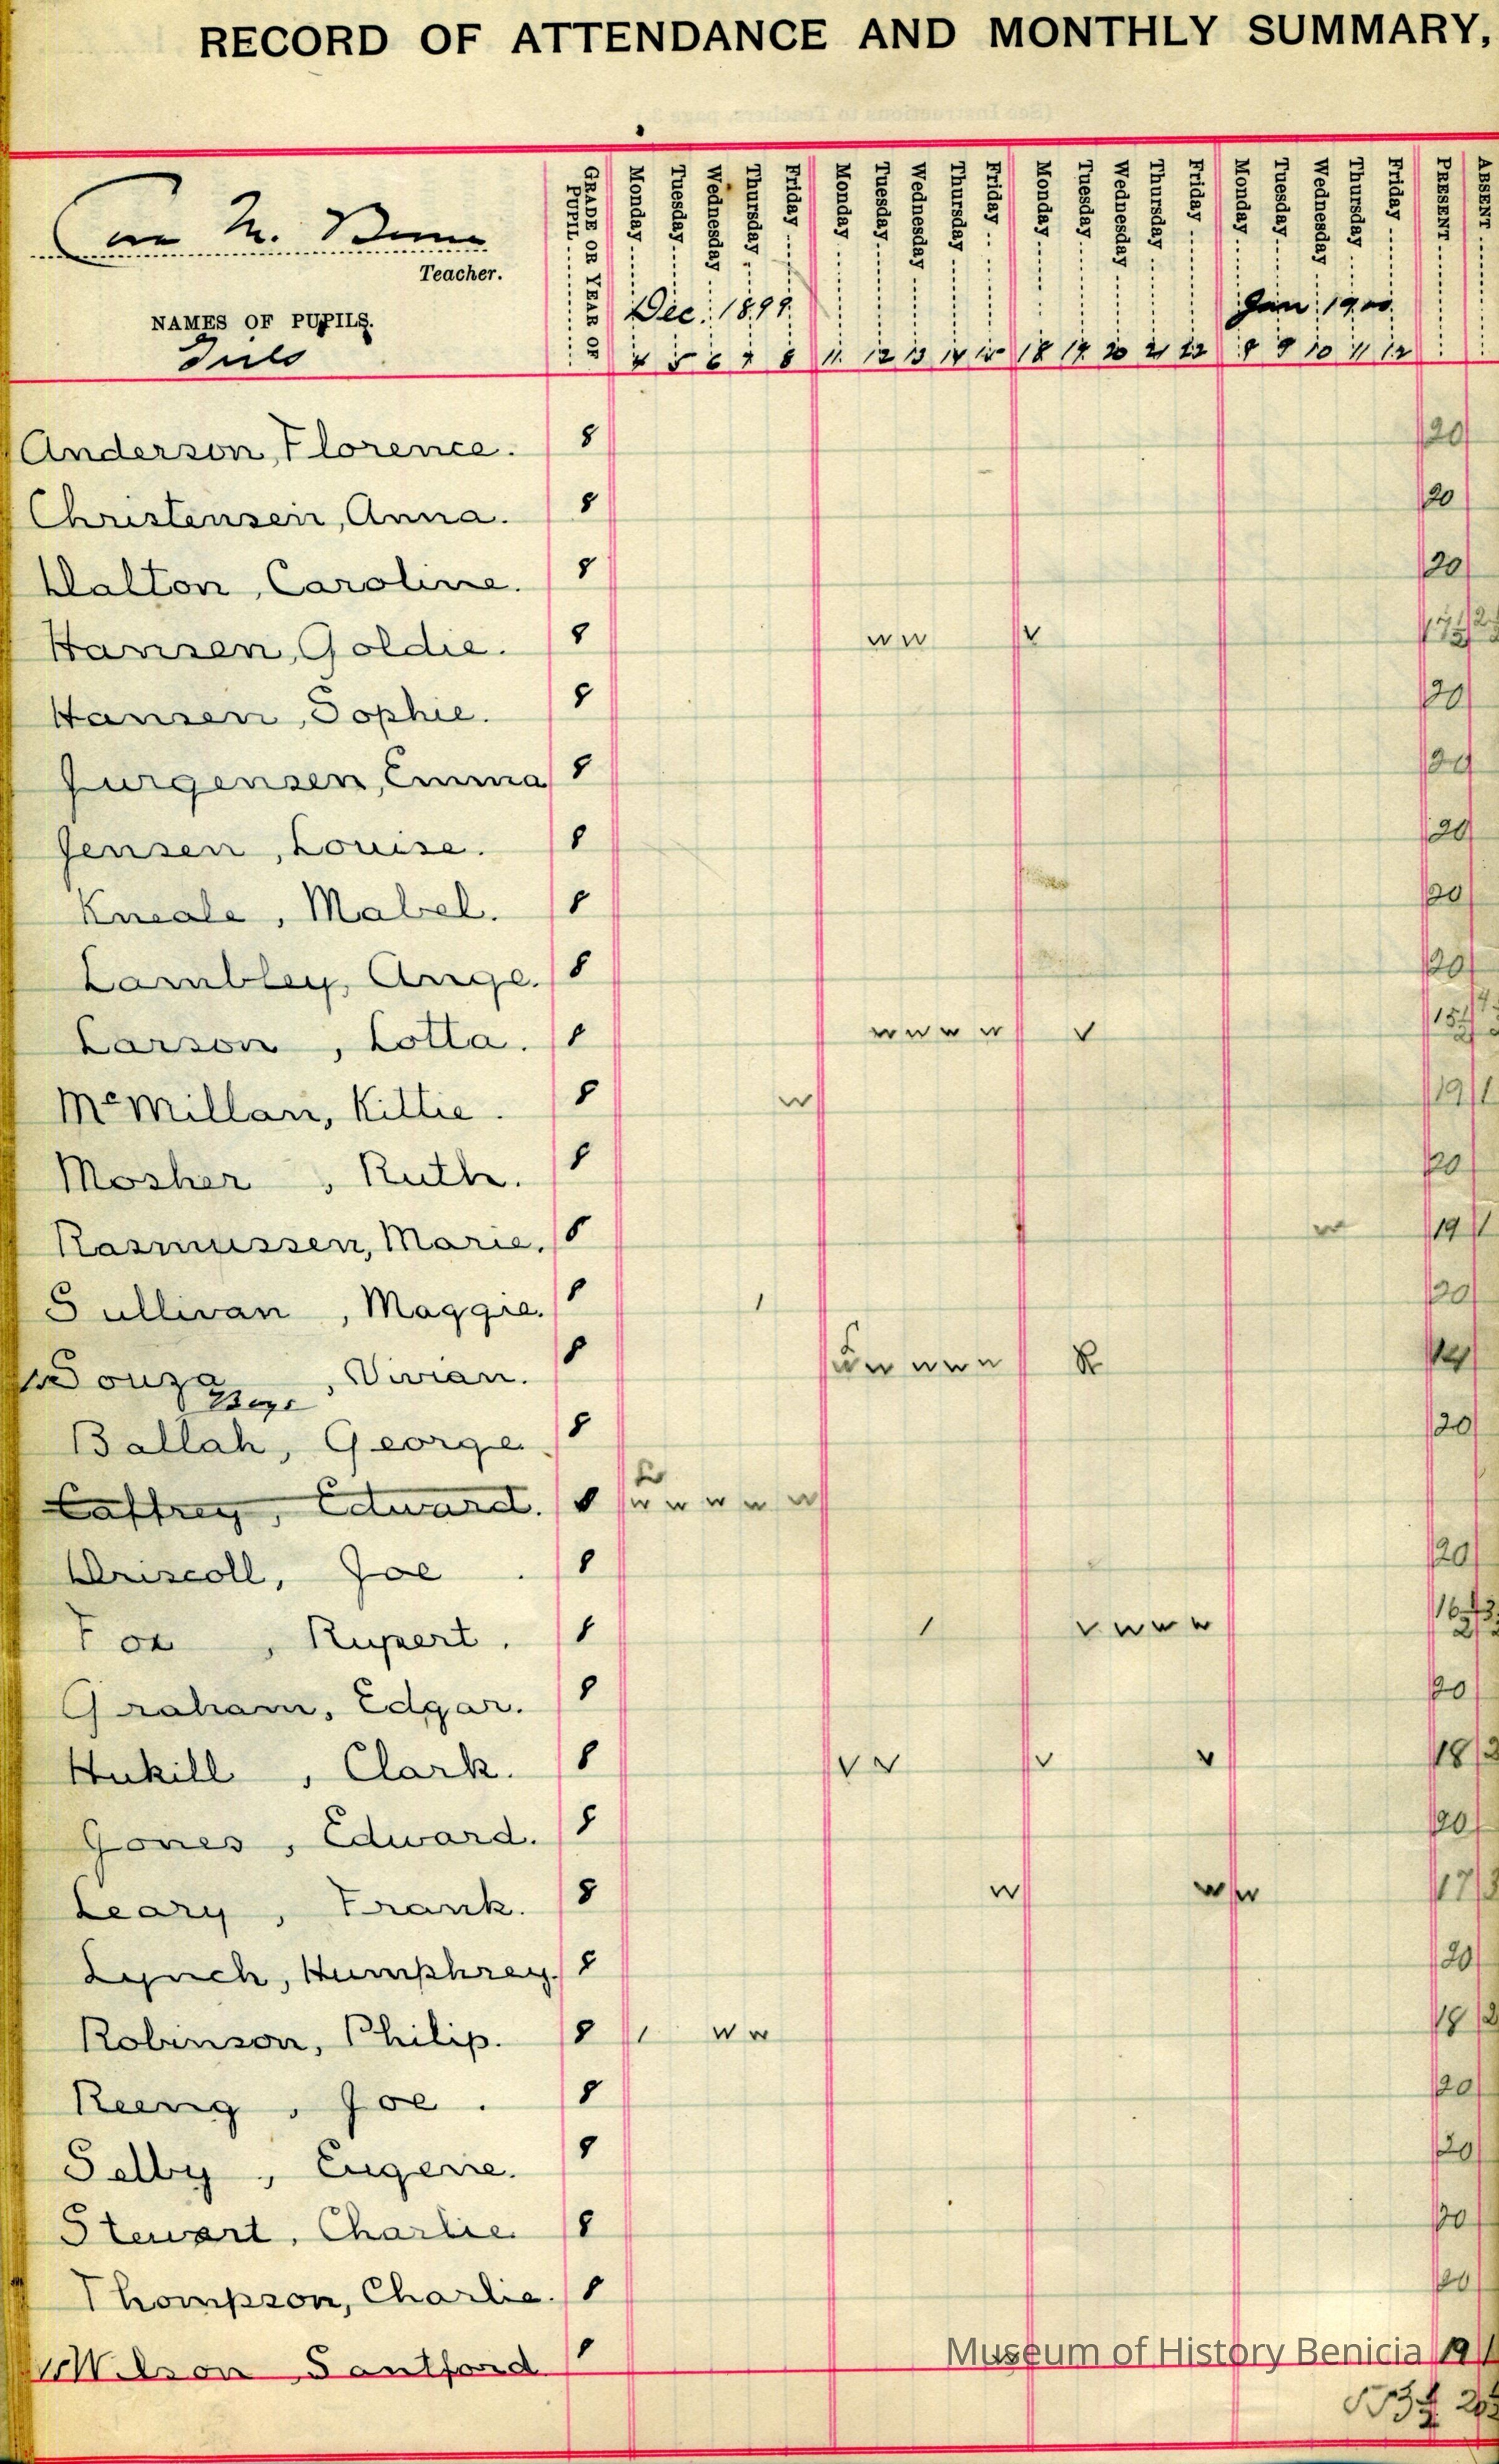 RECORD OF ATTENDANCE AND MONTHLY SUMMARY,
GRADE OR YEAR OF PUPIL Monday Tuesday Wednesday Thursday Friday Monday Tuesday Wednesday Thursday Friday Monday Tuesday Wednesday Thursday Friday Monday Tuesday Wednesday Thursday Friday PRESENT ABSENT
M.
Teacher.
Dec. 1899. Jan 1900
NAMES OF PUPILS.
Girls
4 5 6 7 8 11 12 13 14 15 18 19 20 21 22 8 9 10 11 12
Anderson, Florence. 8 20
Christensen, Anna. 8 20
Dalton, Caroline. 8 20
Hansen, Goldie. 8 w w v 17½ 2½
Hansen, Sophie. 8 20
Jurgensen, Emma 8 20
Jensen, Louise. 8 20
Kneale, Mabel. 8 20
Lambley, Ange. 8 20
Larson, Lotta. 8 w w w w v 15½ 4½
McMillan, Kittie. 8 w 19 1
Mosher, Ruth. 8 20
Rasmussen, Marie. 8 w 19 1
Sullivan, Maggie. 8 / 20
Souza, Vivian. 8 L w w w w w R 14
Boys
Ballah, George. 8 20
Caffrey, Edward. 8 L w w w w w
Driscoll, Joe. 8 20
Fox, Rupert. 8 / v w w w 16½ 3½
Graham, Edgar. 8 20
Hukill, Clark. 8 v v v v 18 2
Jones, Edward. 8 20
Leary, Frank. 8 w w w 17 3
Lynch, Humphrey. 8 20
Robinson, Philip. 8 / w w 18 2
Reeng, Joe. 8 20
Selby, Eugene. 8 20
Stewart, Charlie 8 20
Thompson, Charlie. 8 20
Wilson, Santford 8 19 1
Museum of History Benicia